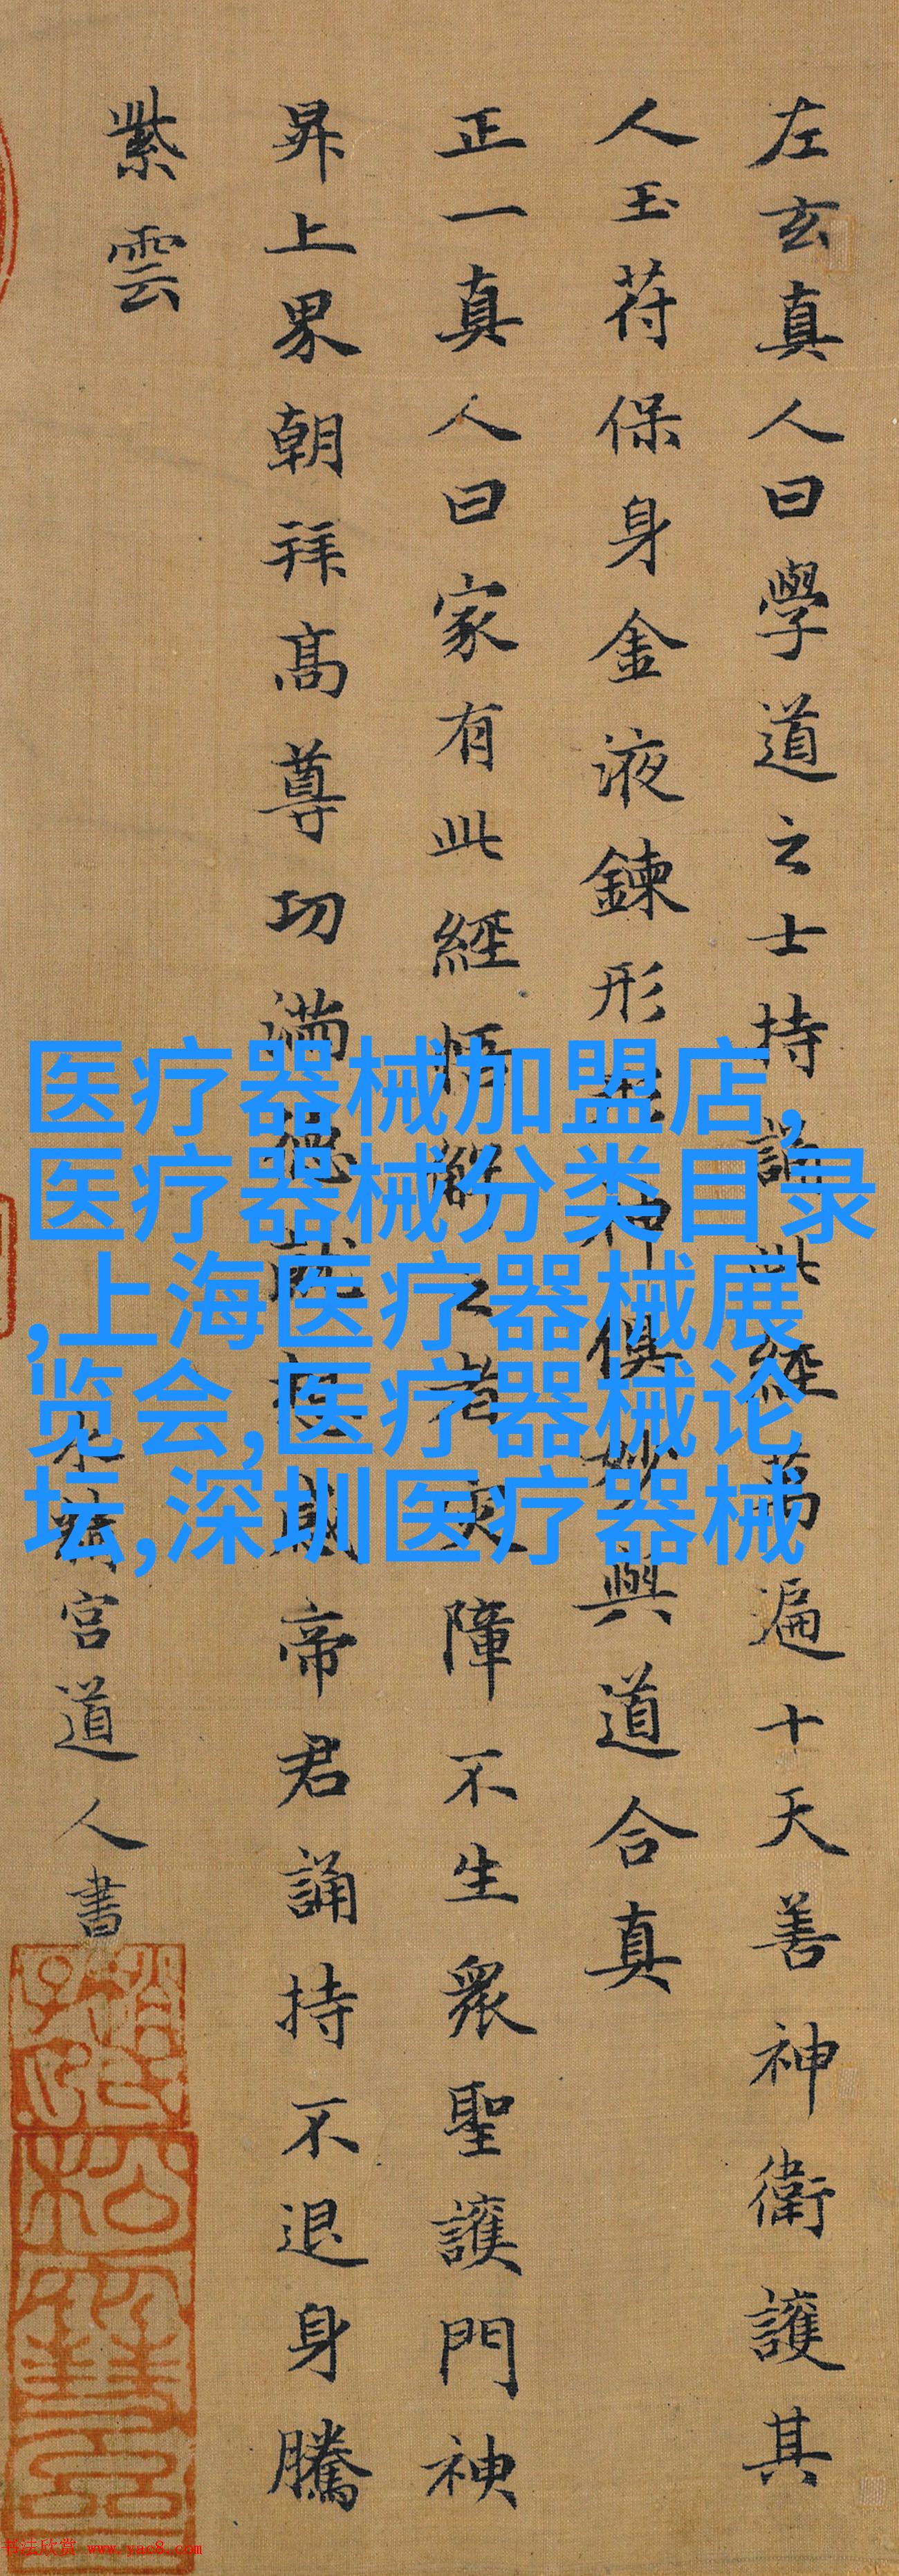 左玄真人曰學道之士持誦此經萬遍十天善神衛護其
人玉苻保身金液鍊形神俱妙與道合真
正一真人曰家有此經悟解之者灾障不生衆聖護門神
昇上界朝拜高尊功满德就相感帝君誦持不退身騰
紫雲
水精宮道人書
医疗器械加盟店,
医疗器械分类目录
,上海医疗器械展
览会,医疗器械论
坛,深圳医疗器械
书法欣赏 www.yac8.com